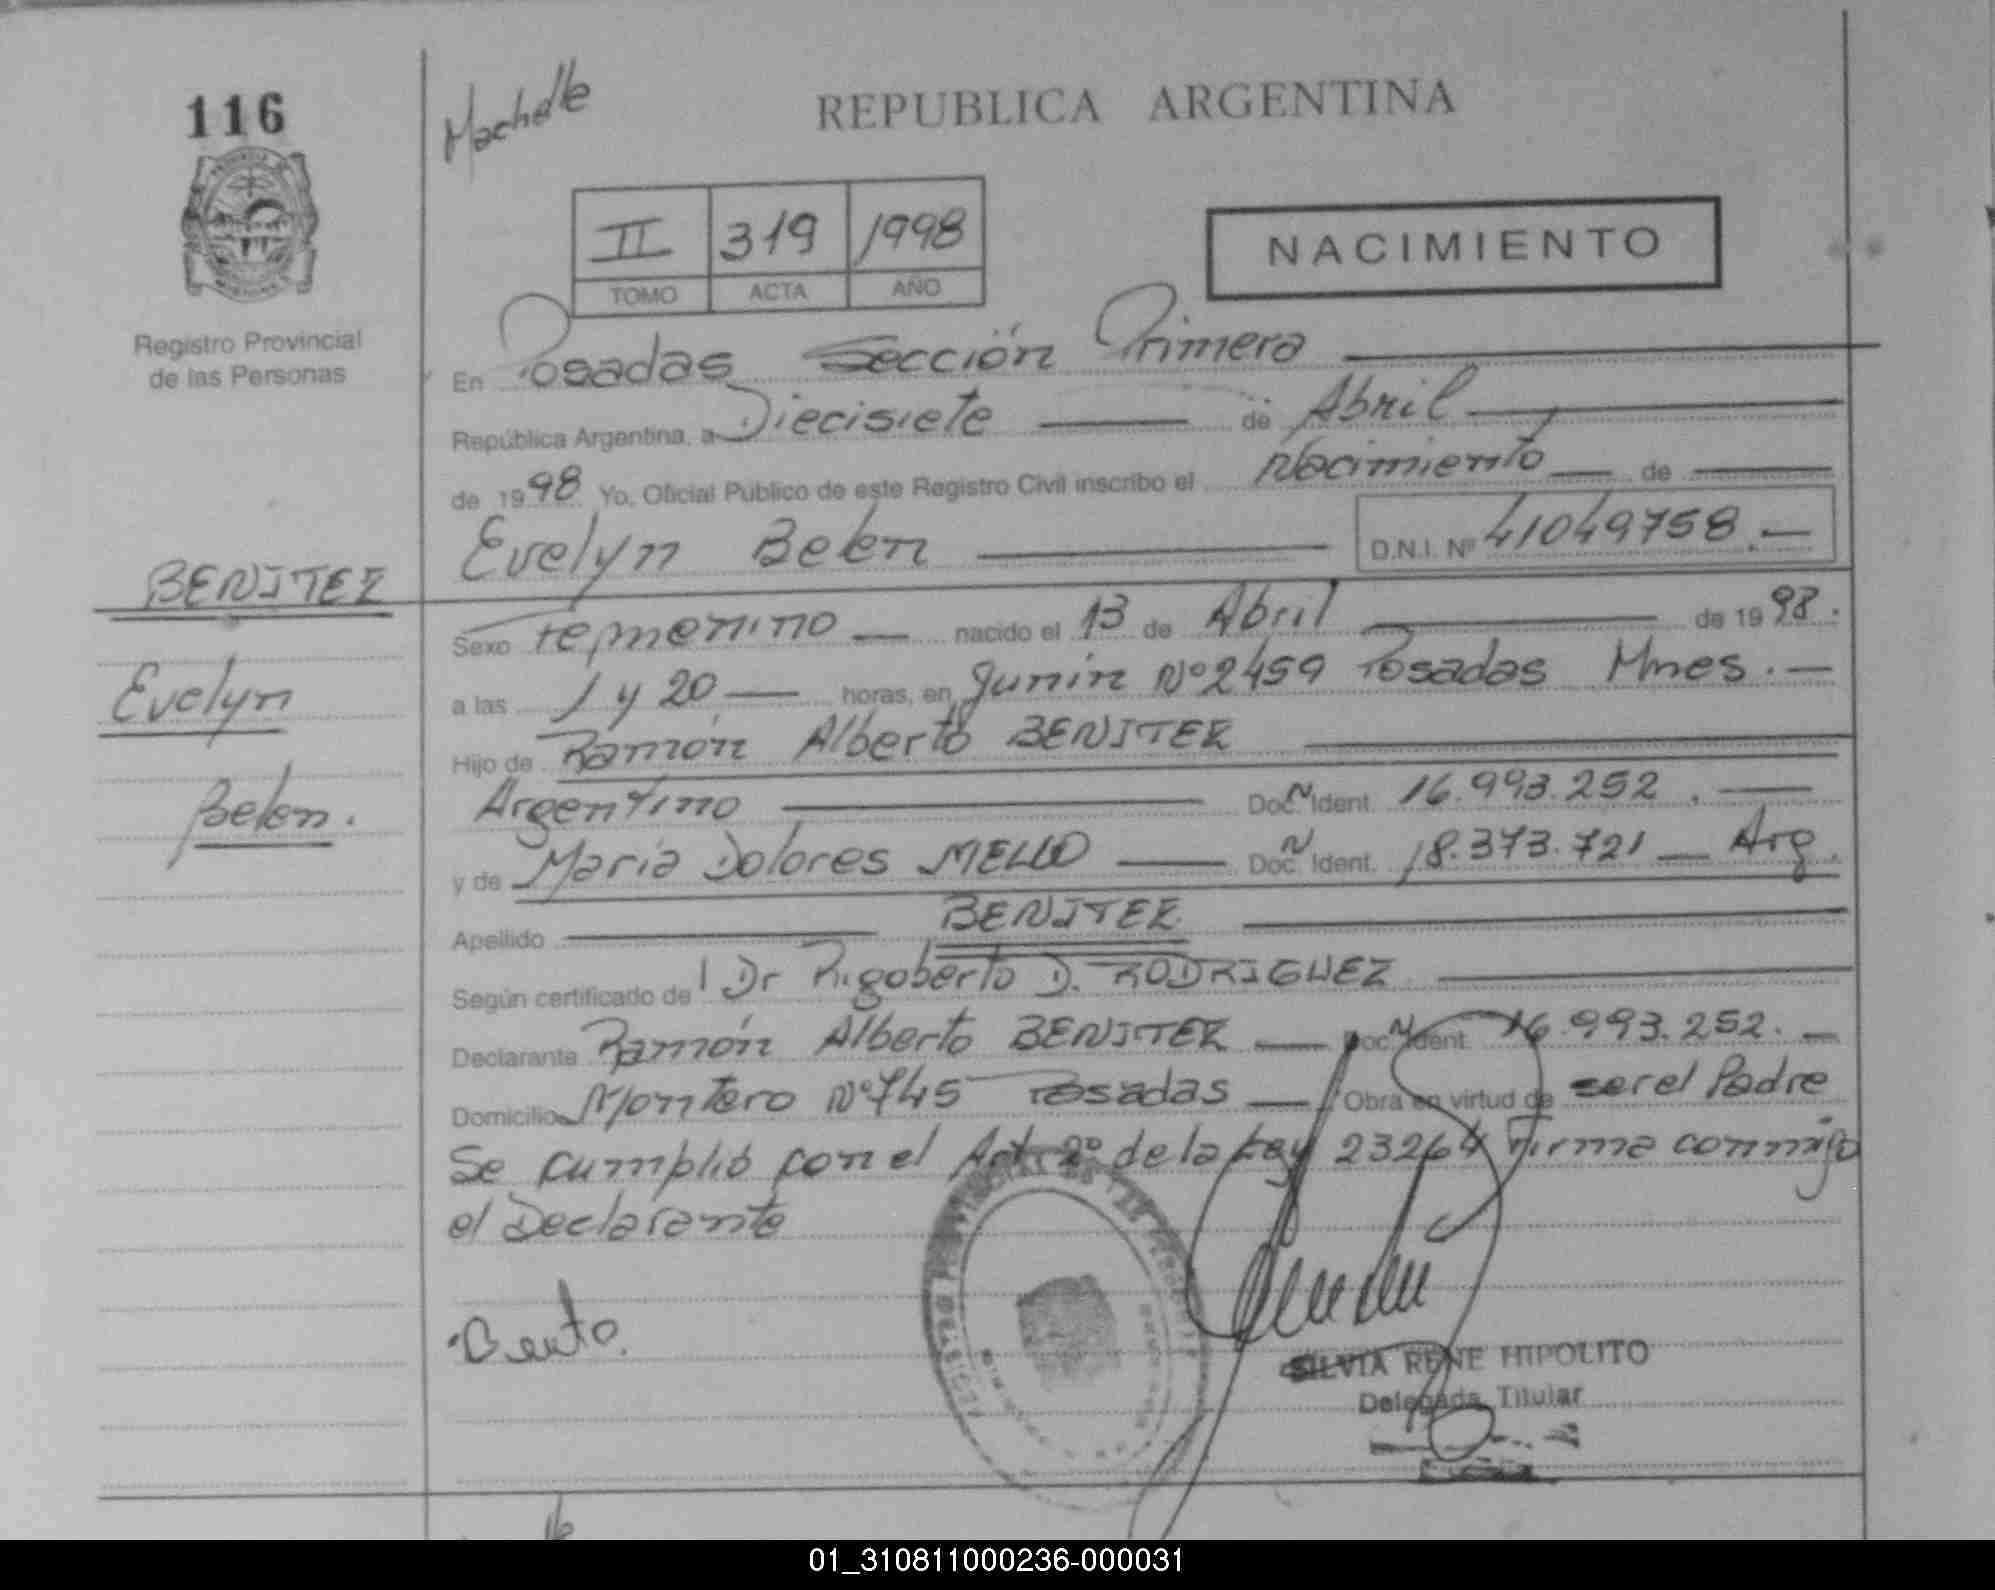 116
Machelle
REPUBLICA ARGENTINA
II 319 1998
TOMO ACTA AÑO
NACIMIENTO
Registro Provincial
de las Personas
En Posadas Sección Primera
República Argentina, a Diecisiete de Abril
de 1998 Yo, Oficial Público de este Registro Civil inscribo el Nacimiento de
Evelyn Belen D.N.I. Nº 41049758.
BENITEZ
Evelyn
Belen.
Sexo Femenino nacido el 13 de Abril de 1998.
a las 1 y 20 horas, en Junín Nº 2459 Posadas Mnes.
Hijo de Ramón Alberto BENITEZ
Argentino Doc. Ident. 16.993.252.
y de María Dolores MELLO Doc. Ident. 18.373.721 Arg.
Apellido BENITEZ
Según certificado del Dr Rigoberto D. RODRIGUEZ
Declarante Ramón Alberto BENITEZ Doc. Ident. 16.993.252.
Domicilio Montero Nº 745 Posadas Obra en virtud de ser el Padre
Se cumplió con el Art 2º de la Ley 23264 Firma conmigo
el Declarante
SILVIA RENE HIPOLITO
Delegada Titular
01_310811000236-000031